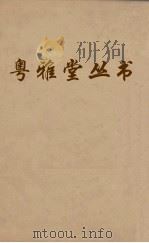 粤雅堂丛书
mtoou.info